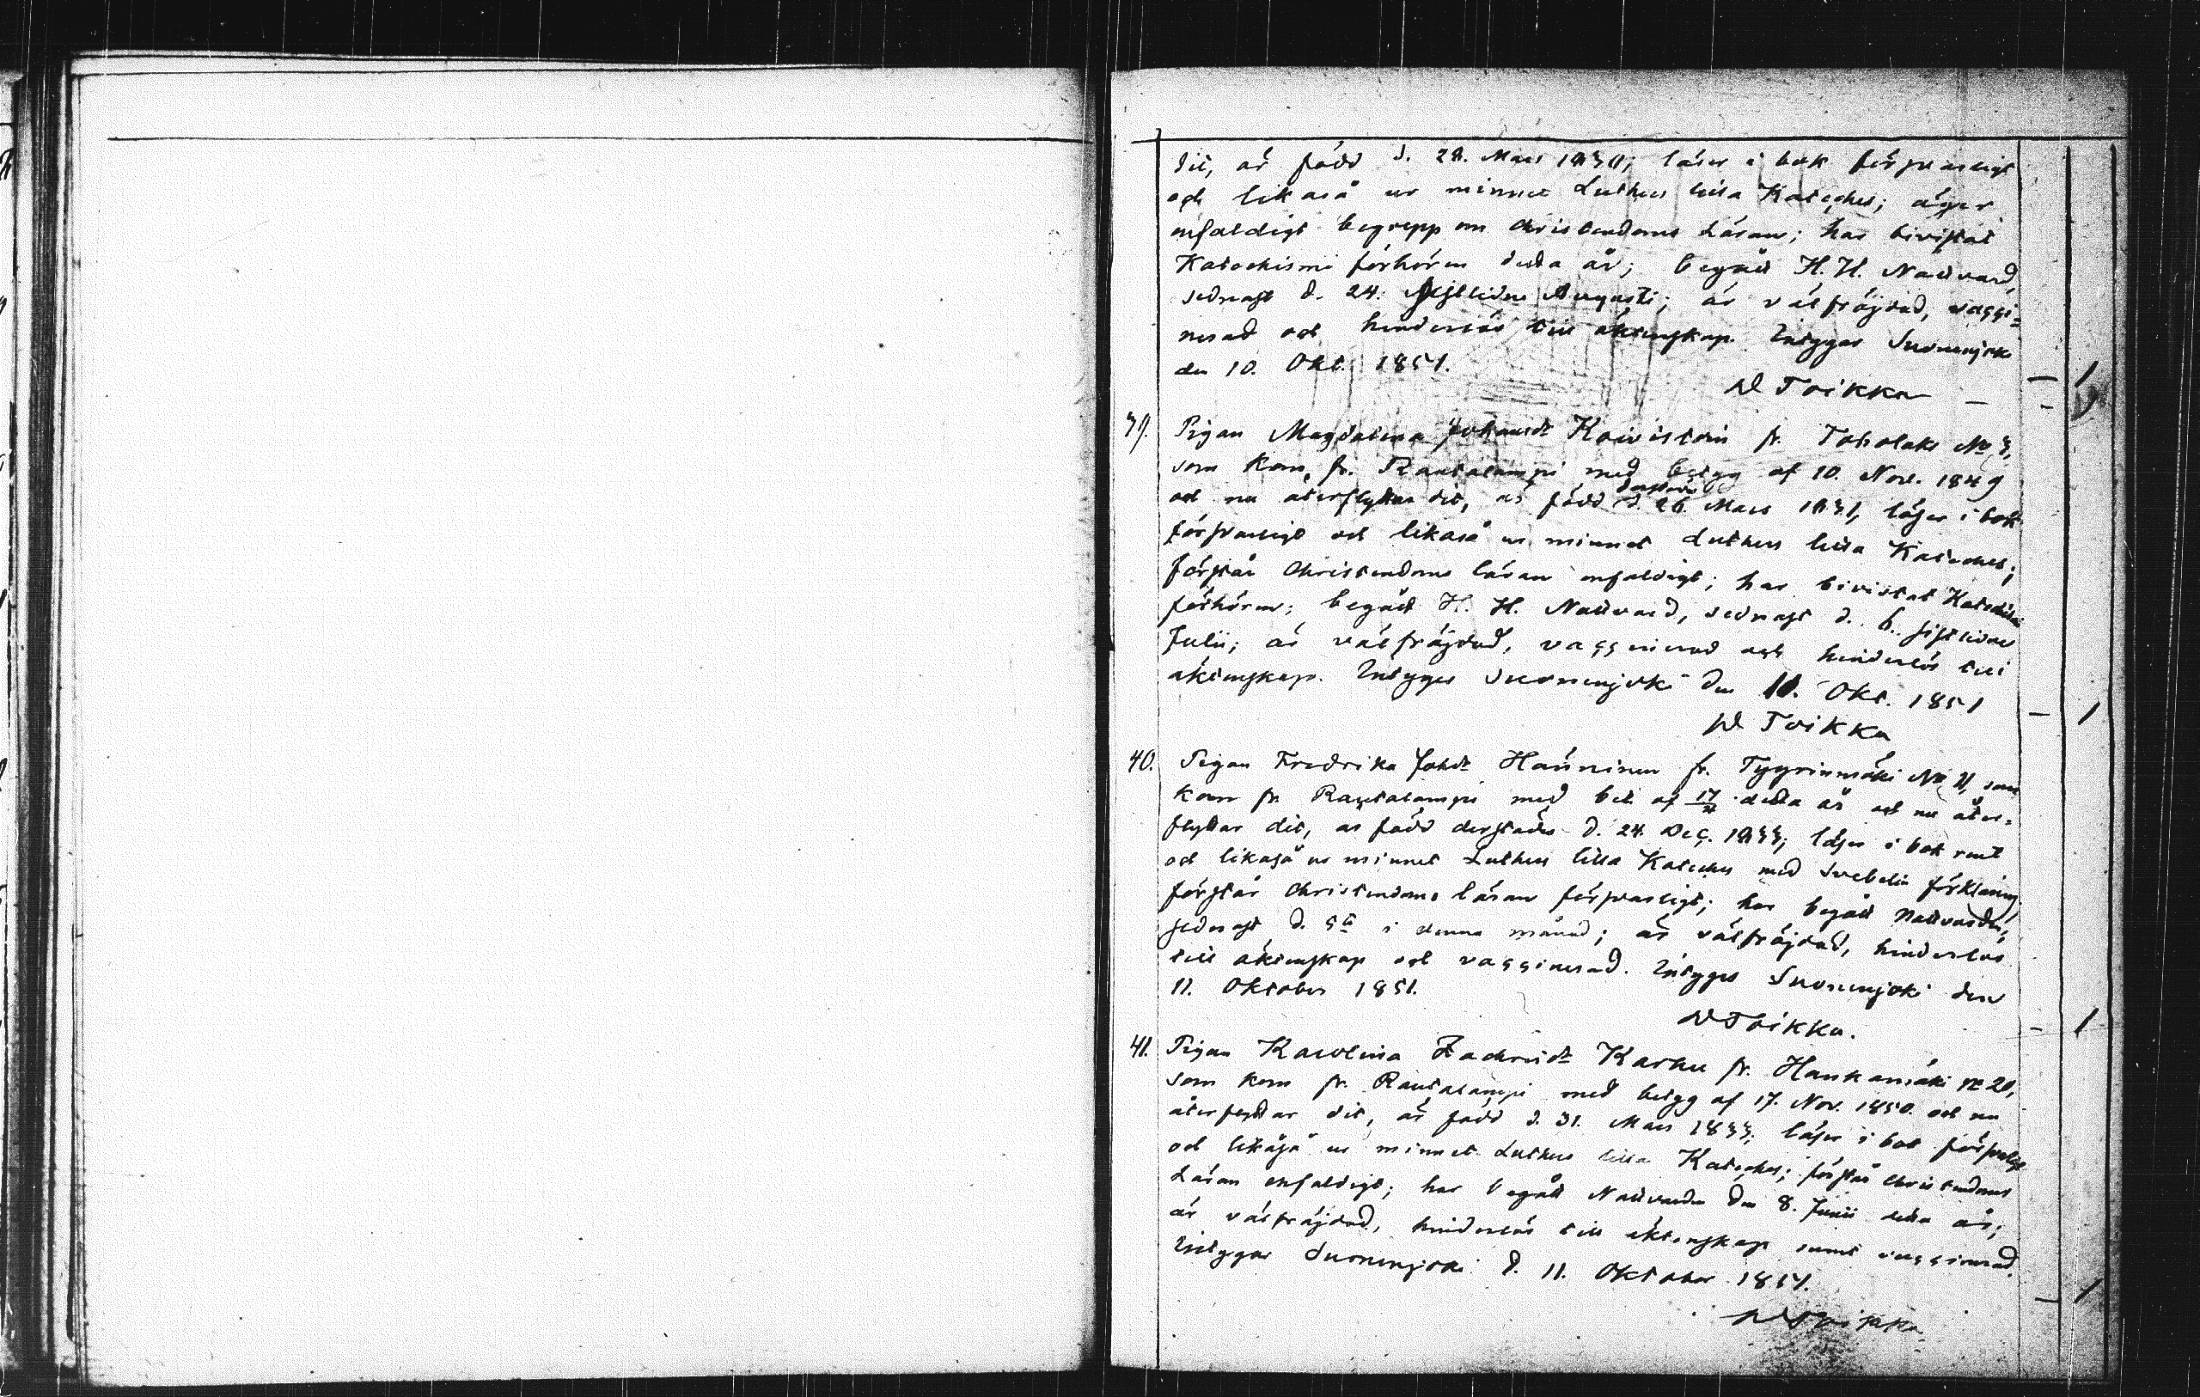 dit, är född d. 28. Mars ; läser i bok försvarligt
och likaså ur minnet Luthers lilla Kateches; äger
enfaldigt begrepp om Christendoms Läran; har bivistat
Katechismi förhören detta år; begått H. H. Nattvard,
sednast d. 24. sistlidne Augusti; är välfräjdad, vacci-
nerad och hinderlös till äktenskap. Intygas Suonenjoki
den 10. Okt. 1851.
Toikka
39. Pigan Magdalena Johansdr Koivistoin fr. Toholaks №
som kom fr. Rautalampi med betyg af 10. Nov. 1849
och nu återflyttar dit, är född derstädes d. 26. Mars 1831, läser i bok
försvarligt och likaså ur minnet Luthers lilla Kateches;
förstår Christendoms läran enfaldigt; har bivistat Katechismi
förhören; begått H. H. Nattvard, sednast d. 6. sistlidne
Julii; är välfräjdad, vaccinerad och hinderlös till
äktenskap. Intygas Suonenjoki den 11. Okt. 1851
Toikka
40. Pigan Fredrika Johdr Hänninen fr. Tyyrinmäki № 11, som
kom fr. Rautalampi med bet. af detta år och nu åter-
flyttar dit, är född derstädes d. 24. Dec. 1833; läser i bok rent
och likaså ur minnet Luthers lilla Kateches med Svebelii förklaring,
förstår Christendoms läran försvarligt; har begått Nattvarden,
sednast d. 5te i denna månad; är välfräjdad, hinderlös
till äktenskap och vaccinerad. Intygas Suonenjoki den
11. Oktober 1851.
Toikka.
41. Pigan Karolina Zachrisdr Karhu fr. Hankamäki № 20,
som kom fr. Rautalampi med betyg af 17. Nov. 1850. och nu
återflyttar dit, är född d. 31. Mars 1833; läser i bok försvarligt
och likaså ur minnet Luthers lilla Kateches; förstår Christendoms
Läran enfaldigt; har begått Nattvarden den 8. Junii detta år;
är välfräjdad, hinderlös till äktenskap samt vaccinerad.
Intygas Suonenjoki d. 11. Oktober 1851.
Toikka